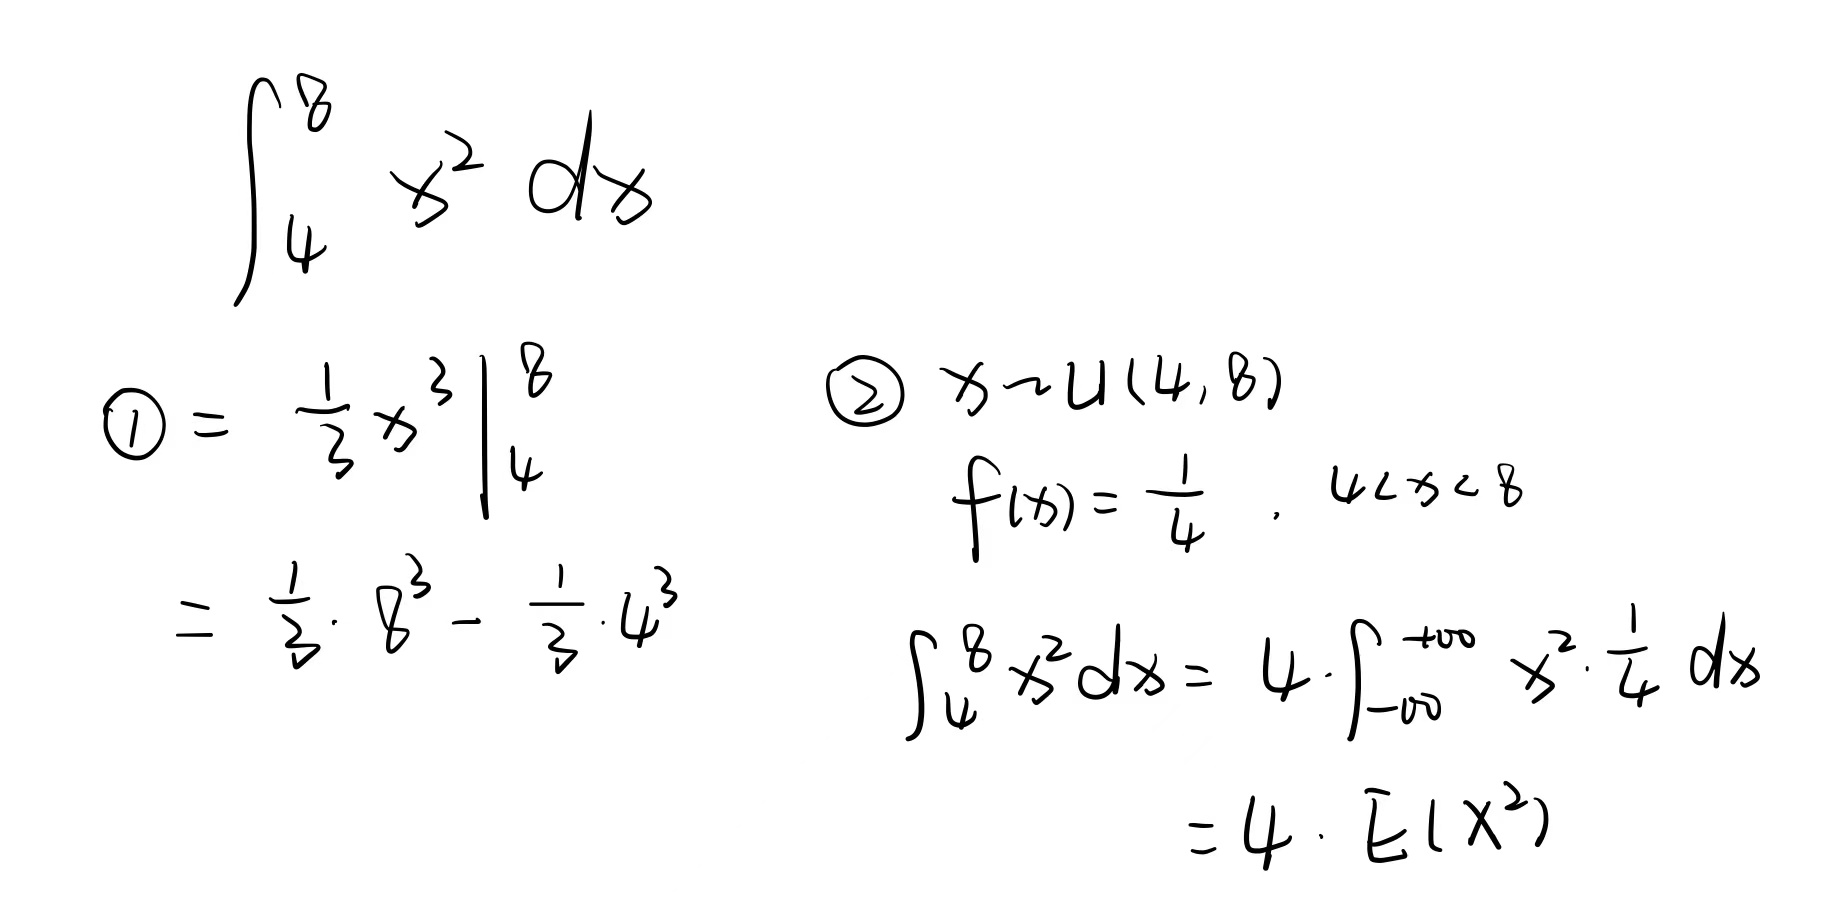 ∫₄⁸ x² dx
① = 1/3 x³ |₄⁸
= 1/3 · 8³ − 1/3 · 4³
② x ~ U(4, 8)
f(x) = 1/4 . 4 < x < 8
∫₄⁸ x² dx = 4 · ∫₋∞⁺∞ x² · 1/4 dx
= 4 · E(X²)